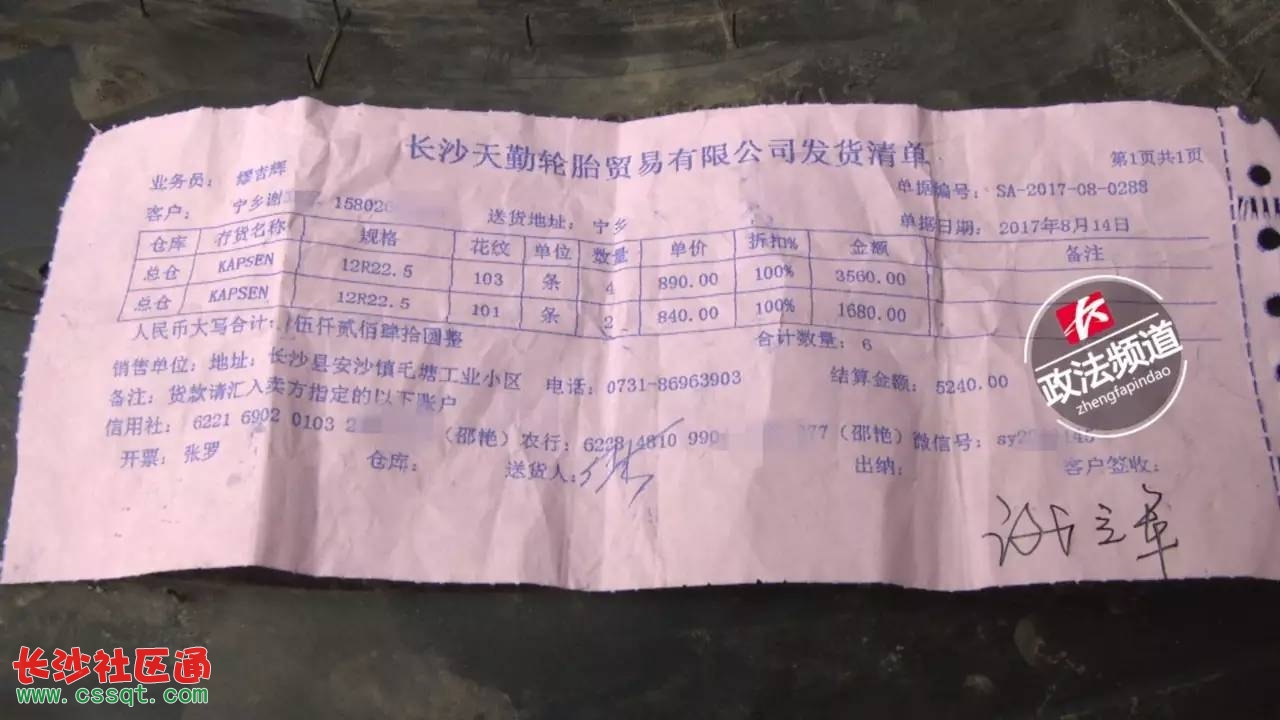 长沙天勤轮胎贸易有限公司发货清单
第1页共1页
业务员: 缪吉辉
单据编号: SA-2017-08-0288
客户: 宁乡谢 158026 送货地址: 宁乡 单据日期: 2017年8月14日
仓库 存货名称 规格 花纹 单位 数量 单价 折扣% 金额 备注
总仓 KAPSEN 12R22.5 103 条 4 890.00 100% 3560.00
总仓 KAPSEN 12R22.5 101 条 2 840.00 100% 1680.00
人民币大写合计: 伍仟贰佰肆拾圆整 合计数量: 6
销售单位: 地址: 长沙县安沙镇毛塘工业小区 电话: 0731-86963903 结算金额: 5240.00
备注: 货款请汇入卖方指定的以下账户
信用社: 6221 6902 0103 2 (邵艳) 农行: 6228 4810 990 077 (邵艳) 微信号: sy
开票: 张罗 仓库: 送货人: 出纳: 客户签收:
政法频道
zhengfapindao
长沙社区通
www.cssqt.com